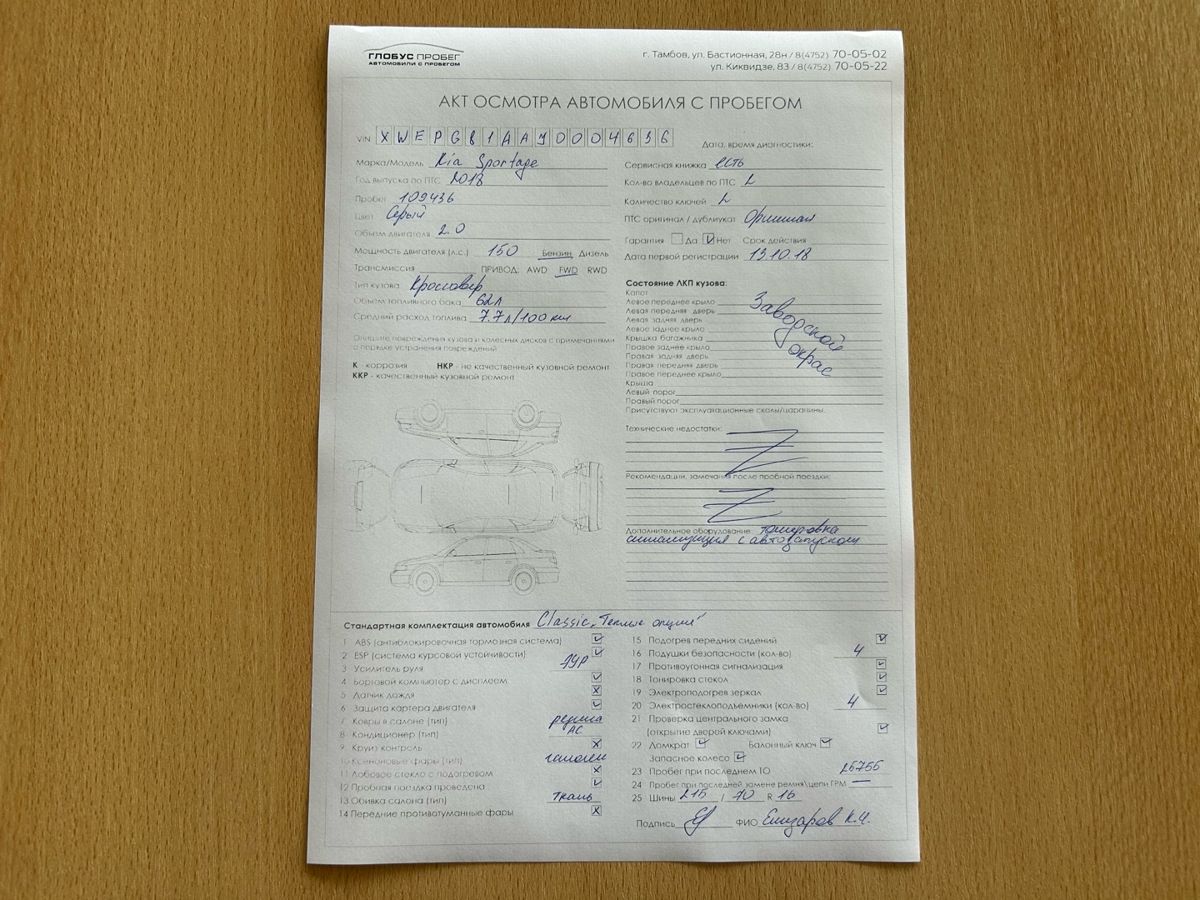 ГЛОБУС ПРОБЕГ
АВТОМОБИЛИ С ПРОБЕГОМ
г. Тамбов, ул. Бастионная, 28н / 8(4752) 70-05-02
ул. Киквидзе, 83 / 8(4752) 70-05-22
АКТ ОСМОТРА АВТОМОБИЛЯ С ПРОБЕГОМ
VIN XWEPG81AAJ0004636
Дата, время диагностики:
Марка/Модель Kia Sportage
Год выпуска по ПТС 2018
Пробег 109436
Цвет Серый
Объем двигателя 2.0
Мощность двигателя (л.с.) 150 Бензин Дизель
Трансмиссия ПРИВОД: AWD FWD RWD
Тип кузова Кроссовер
Объем топливного бака 62л
Средний расход топлива 7.7л/100км
Опишите повреждения кузова и колесных дисков с примечаниями
о порядке устранения повреждений
К - коррозия НКР - не качественный кузовной ремонт
ККР - качественный кузовной ремонт
Сервисная книжка есть
Кол-во владельцев по ПТС 2
Количество ключей 2
ПТС оригинал / дубликат Оригинал
Гарантия Да Нет Срок действия
Дата первой регистрации 13.10.18
Состояние ЛКП кузова:
Капот
Левое переднее крыло
Левая передняя дверь
Левая задняя дверь
Левое заднее крыло
Крышка багажника
Правое заднее крыло
Правая задняя дверь
Правая передняя дверь
Правое переднее крыло
Крыша
Левый порог
Правый порог
Заводской
окрас
Присутствуют эксплуатационные сколы/царапины.
Технические недостатки:
Рекомендации, замечания после пробной поездки:
Дополнительное оборудование: тонировка
сигнализация с автозапуском
Стандартная комплектация автомобиля Classic „Теплые опции"
1 ABS (антиблокировочная тормозная система)
2 ESP (система курсовой устойчивости)
3 Усилитель руля ЭУР
4 Бортовой компьютер с дисплеем
5 Датчик дождя
6 Защита картера двигателя
7 Ковры в салоне (тип) резина
8 Кондиционер (тип) AC
9 Круиз контроль
10 Ксеноновые фары (тип) галоген
11 Лобовое стекло с подогревом
12 Пробная поездка проведена
13 Обивка салона (тип) ткань
14 Передние противотуманные фары
15 Подогрев передних сидений
16 Подушки безопасности (кол-во) 4
17 Противоугонная сигнализация
18 Тонировка стекол
19 Электроподогрев зеркал
20 Электростеклоподъемники (кол-во) 4
21 Проверка центрального замка
(открытие дверей ключами)
22 Домкрат Балонный ключ
Запасное колесо
23 Пробег при последнем ТО
24 Пробег при последней замене ремня\цепи ГРМ —
25 Шины 215 / 70 R 16
Подпись ФИО